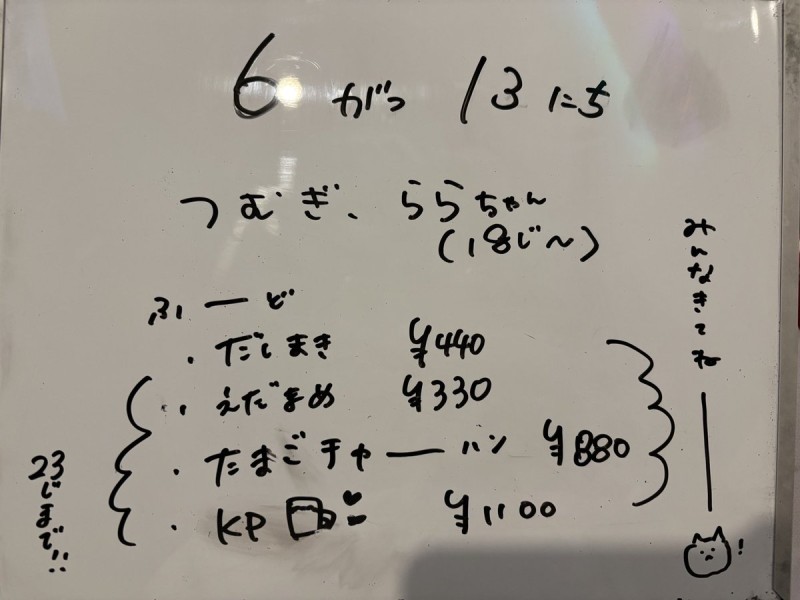 6がつ 13にち
つむぎ、ららちゃん
(18じ〜)
ふーど
・だしまき ¥440
・えだまめ ¥330
・たまごチャーハン ¥880
・KP ¥1100
みんなきてねー!
23じまで!!